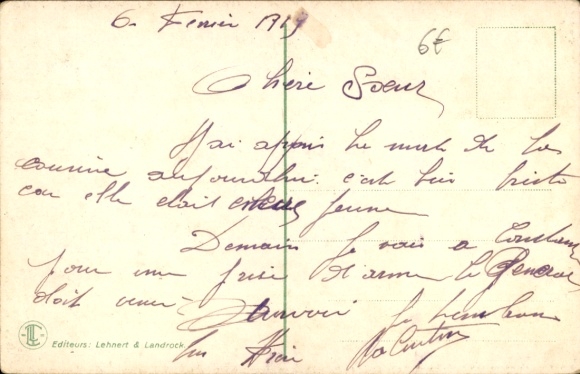 6 Fevrier 1919
6€
Chère Soeur
J'ai appris la mort de la
cousine aujourdhui c'est bien triste
car elle etait encore jeune
Demain je vais a Constan
pour une prise d'arme le General
doit venir
Aurevoir je
ton Frère
LL
Editeurs: Lehnert & Landrock.